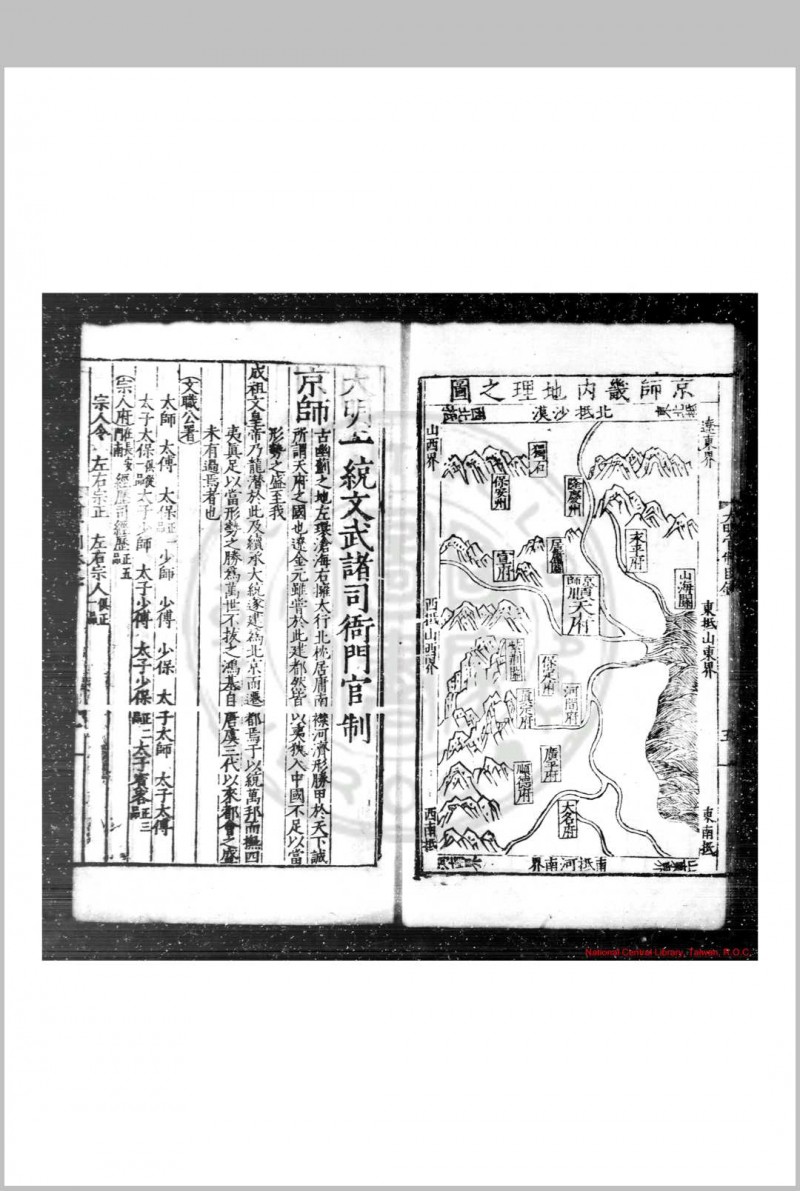 京師畿內地理之圖
北抵沙漠
遼東界
東抵山東界
東南抵
南抵河南界
西南抵
西抵山西界
山西界
獨石
保安州
隆慶州
永平府
山海關
居庸關
宣府
京師順天府
紫荊關
保定府
河間府
真定府
廣平府
順德府
大名府
大明一統文武諸司衙門官制
京師
古幽薊之地左環滄海右擁太行北枕居庸南襟河濟形勝甲於天下誠
所謂天府之國也遼金元雖嘗於此建都然皆以夷狄入中國不足以當
形勢之盛至我
成祖文皇帝乃龍潛於此及纘承大統遂建為北京而遷都焉于以統萬邦而撫四
夷真足以當形勢之勝為萬世不拔之鴻基自唐虞三代以來都會之盛
未有過焉者也
文職公署
太師 太傅 太保正一品 少師 少傅 少保 太子太師 太子太傅
太子太保俱從一品 太子少師 太子少傅 太子少保正二品 太子賓客正三品
宗人府在長安門南 經歷司經歷正五品
宗人令 左右宗正 左右宗人俱正一品
National Central Library, Taiwan, R.O.C